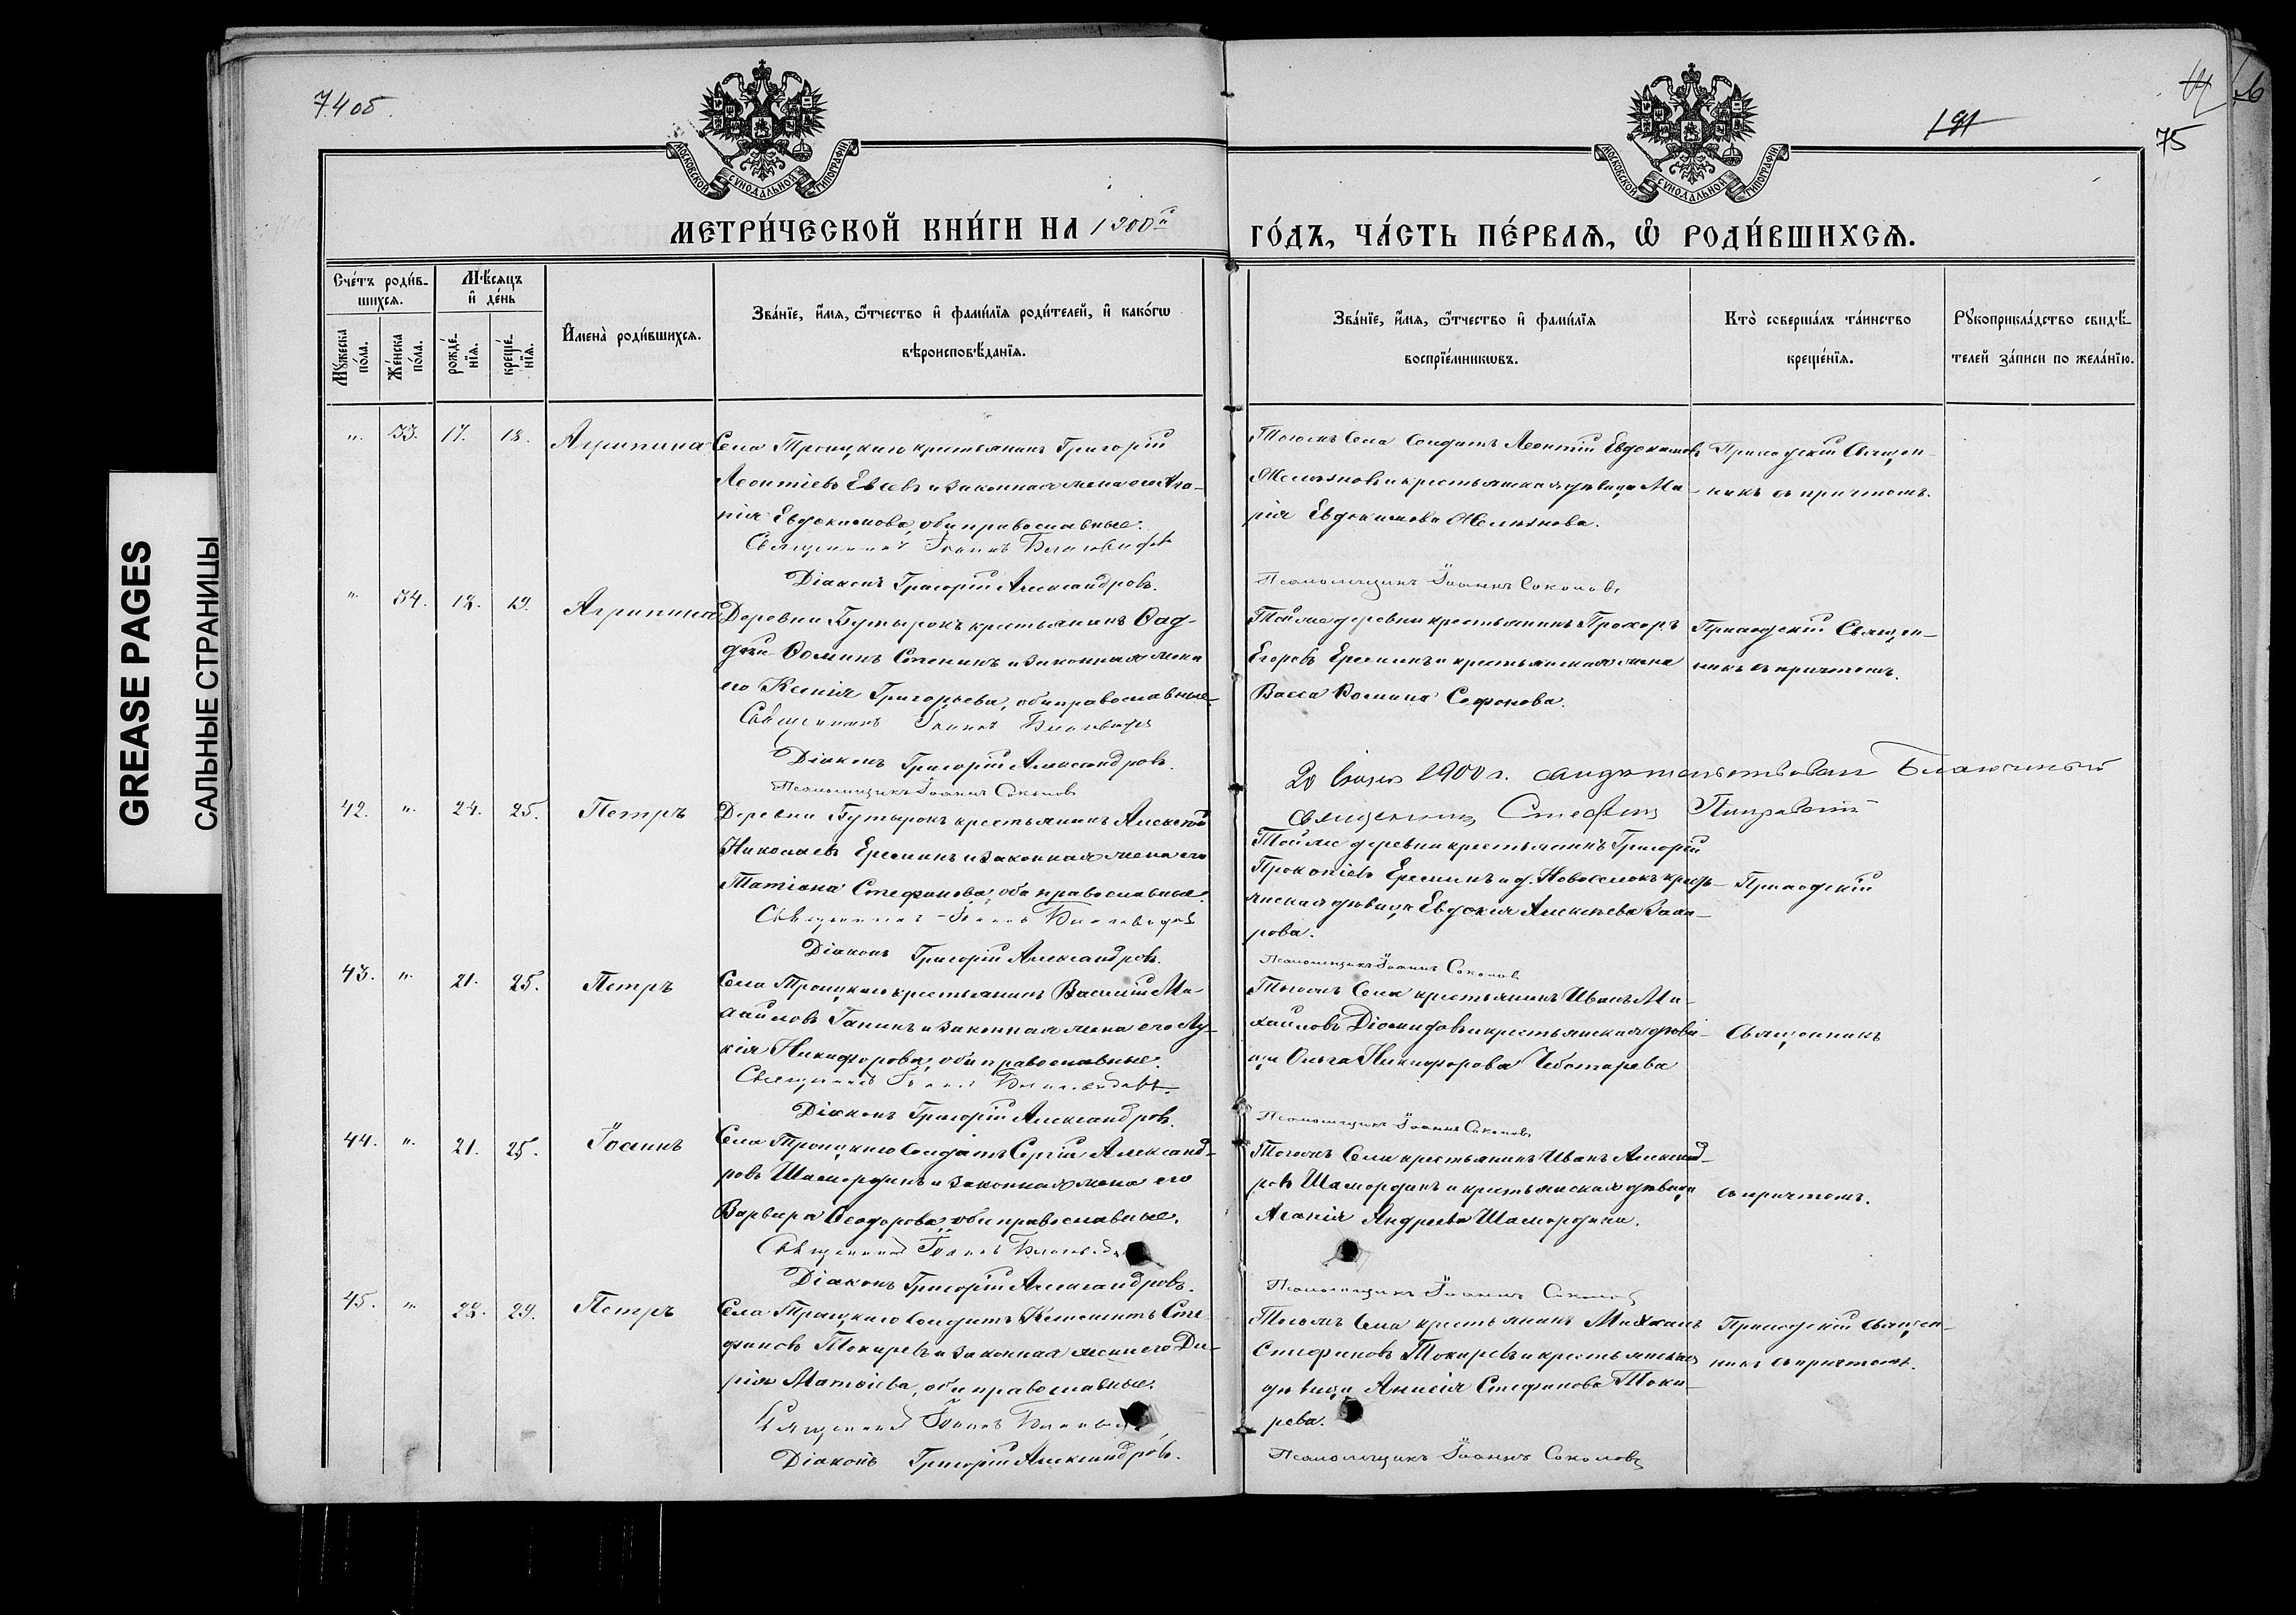 GREASE PAGES
САЛЬНЫЕ СТРАНИЦЫ
74 об.
191
75
МОСКОВСКОЙ СѴНОДАЛЬНОЙ ТИПОГРАФІИ
МОСКОВСКОЙ СѴНОДАЛЬНОЙ ТИПОГРАФІИ
МЕТРИ́ЧЕСКОЙ КНИ́ГИ НА 1900й
ГО́ДЪ, ЧА́СТЬ ПЕ́РВАѦ, Ѡ҆ РОДИ́ВШИХСѦ.
Сче́тъ роди́в-
шихсѧ.
Мꙋжеска по́ла.
Же́нска по́ла.
Мѣ́сѧцъ
и҆ де́нь
рожде́-нїѧ.
креще́-нїѧ.
И҆мена̀ роди́вшихсѧ.
Зва́нїе, и҆́мѧ, ѻ҆́тчество и҆ фами́лїѧ роди́телей, и҆ како́гѡ
вѣроисповѣ́данїѧ.
Зва́нїе, и҆́мѧ, ѻ҆́тчество и҆ фами́лїѧ
воспрїе́мникѡвъ.
Кто̀ соверша́лъ та́инство
креще́нїѧ.
Рꙋкоприкла́дство свидѣ́-
телей за́писи по жела́нїю.
" 33. 17. 18. Агрипина
Села Троицкаго крестьянинъ Григорій
Леонтіевъ Евсевъ и законная жена его Ага-
пія Евдокимова, оба православные.
Священникъ Іоаннъ
Діаконъ Григорій Александровъ.
Тогожъ Села Солдатъ Леонтій Евдокимовъ
и крестьянская дѣвица Ма-
рія Евдокимова
Псаломщикъ Іоаннъ Соколовъ
Приходскій Священ-
никъ съ причтомъ.
" 34. 18. 19. Агрипина
Деревни Бутырокъ крестьянинъ Ѳад-
дей Ѳоминъ и законная жена
его Ксенія Григорьева, оба православные.
Священникъ Іоаннъ
Діаконъ Григорій Александровъ.
Псаломщикъ Іоаннъ Соколовъ
Тойже деревни крестьянинъ Прохоръ
Егоровъ Ереминъ и крестьянская жена
Васса Ѳомина Сафонова.
Приходскій Священ-
никъ съ причтомъ.
20 1900 г. свидетельствовалъ Благочинный
священникъ Стефанъ
42. " 24. 25. Петръ
Деревни Бутырокъ крестьянинъ Алексѣй
Николаевъ Ереминъ и законная жена его
Татіана Стефанова, оба православные.
Священникъ Іоаннъ
Діаконъ Григорій Александровъ.
Тойже деревни крестьянинъ Григорій
Прокопіевъ Ереминъ и д. Новоселокъ кресть-
янская дѣвица Евдокія Алексѣева Заха-
рова.
Псаломщикъ Іоаннъ Соколовъ
Приходскій
43. " 21. 25. Петръ
Села Троицкаго крестьянинъ Василій Ми-
хайловъ Ганинъ и законная жена его Лу-
кія Никифорова, оба православные.
Священникъ Іоаннъ
Діаконъ Григорій Александровъ.
Тогожъ Села крестьянинъ Иванъ Ми-
хайловъ Діомидовъ и крестьянская дѣви-
ца Ольга Никифорова Чеботарева
Псаломщикъ Іоаннъ Соколовъ
Священникъ
44. " 21. 25. Іоаннъ
Села Троицкаго Солдатъ Сергій Александ-
ровъ Шамординъ и законная жена его
Варвара Ѳеодорова, оба православные.
Священникъ Іоаннъ
Діаконъ Григорій Александровъ.
Тогожъ Села крестьянинъ Иванъ Александ-
ровъ Шамординъ и крестьянская дѣвица
Агапія Андреева Шамордина.
Псаломщикъ Іоаннъ Соколовъ
съ причтомъ.
45. " 28. 29. Петръ
Села Троицкаго Солдатъ Климентъ Сте-
фановъ Токаревъ и законная жена его Да-
рія Матѳіева, оба православные.
Священникъ Іоаннъ
Діаконъ Григорій Александровъ.
Тогожъ Села крестьянинъ Михаилъ
Стефановъ Токаревъ и крестьянская
дѣвица Анисія Стефанова Тока-
рева.
Псаломщикъ Іоаннъ Соколовъ
Приходскій Священ-
никъ съ причтомъ.